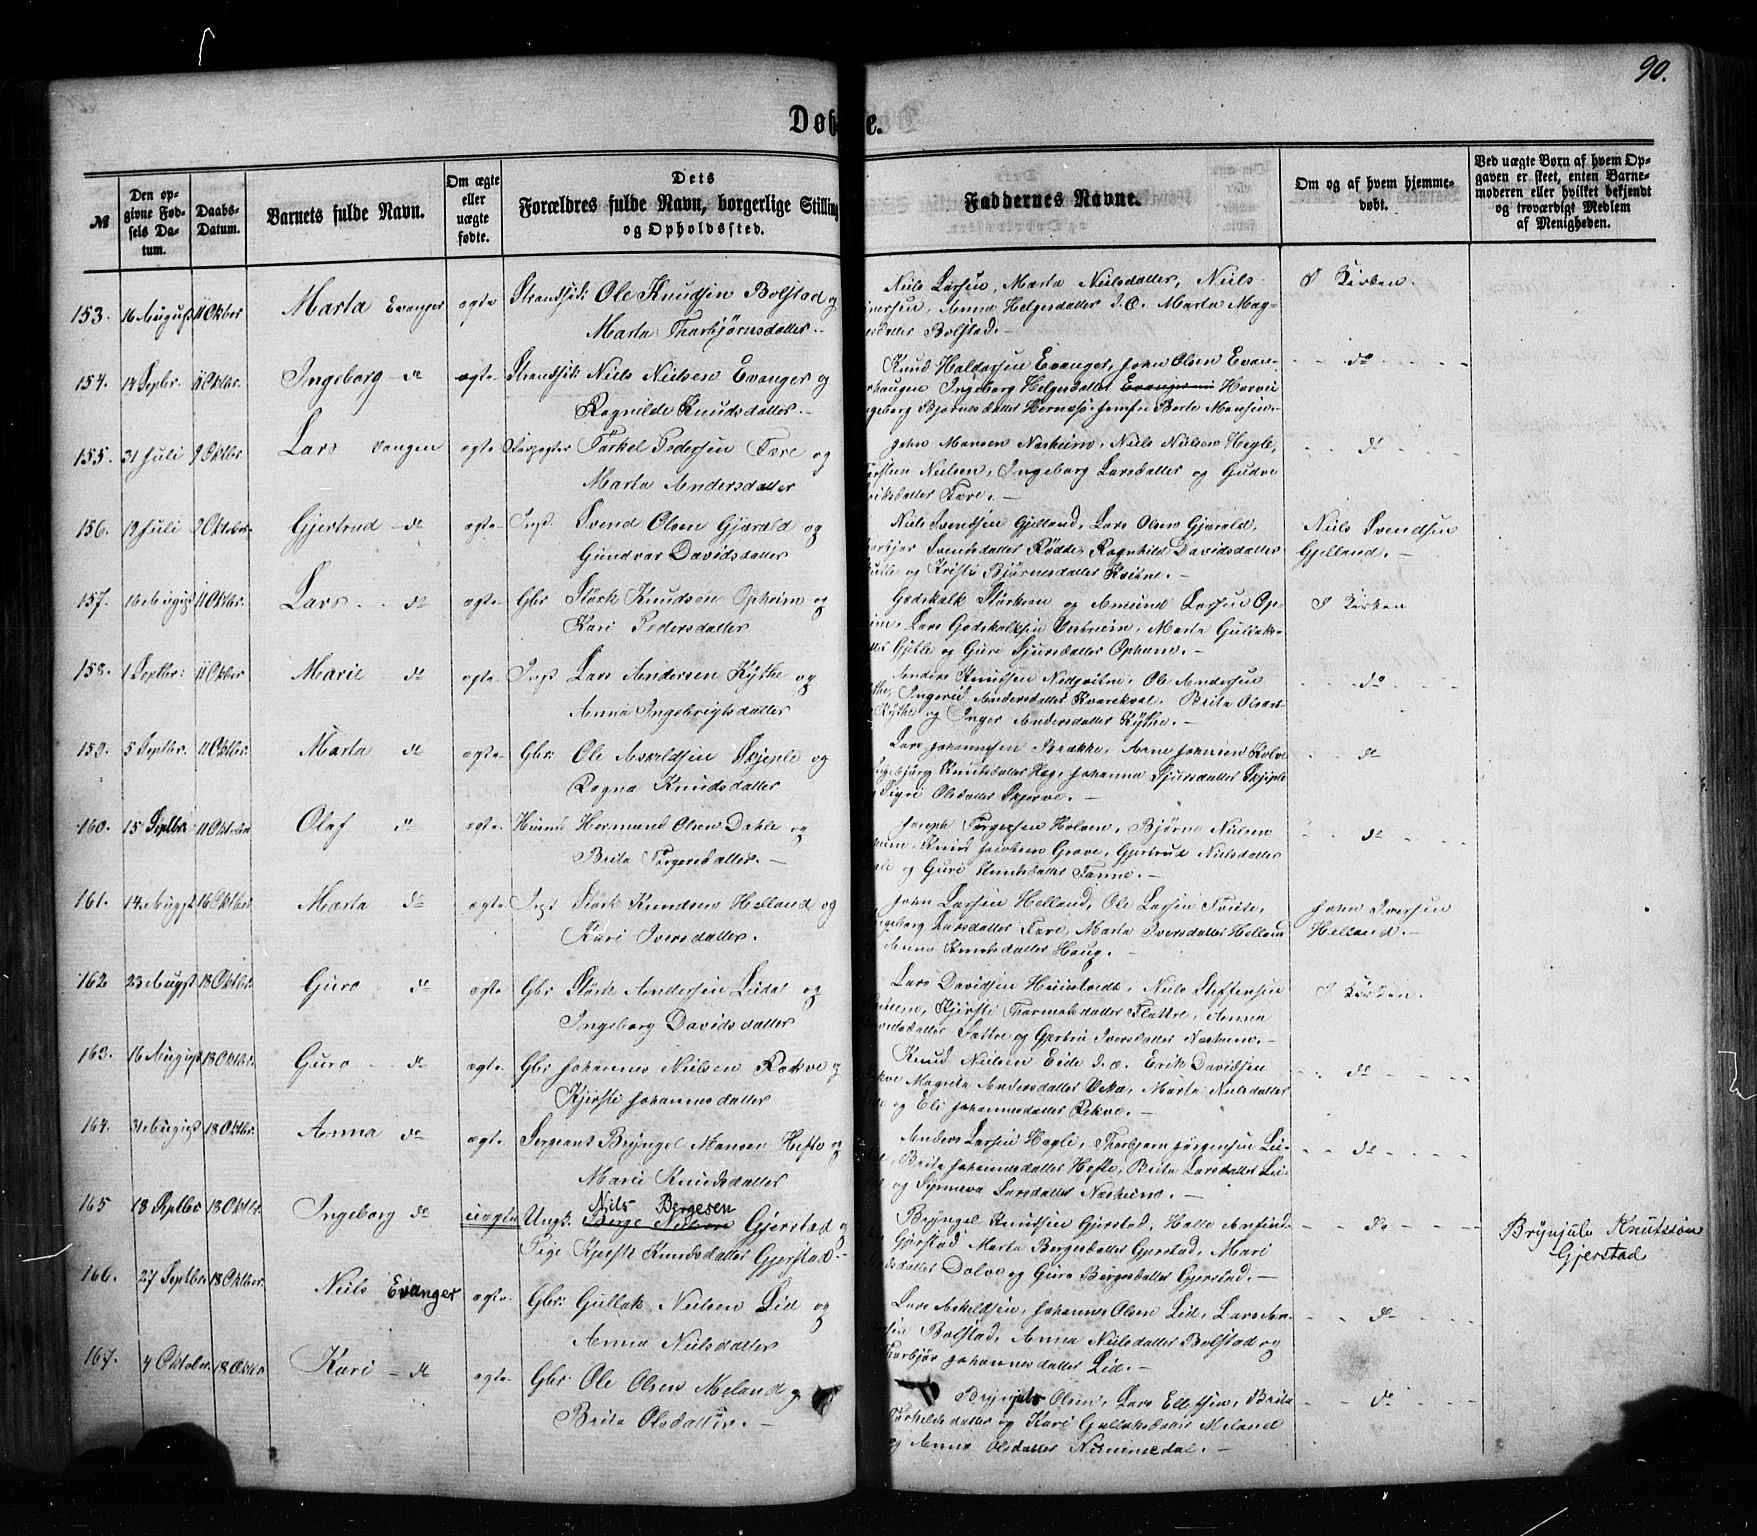 90.
Døbte.
№
Den opgivne Fødsels Datum.
Daabs-Datum.
Barnets fulde Navn.
Om ægte eller uægte fødte.
Dets Forældres fulde Navn, borgerlige Stilling og Opholdssted.
Faddernes Navne.
Om og af hvem hjemmedøbt.
Ved uægte Børn af hvem Opgaven er skeet, enten Barnemoderen eller hvilket bekjendt og troværdigt Medlem af Menigheden.
153. 16 August 11 Oktber Marta Evanger ægte Strandsid: Ole Knudsen Bolstad og
Marta Thorbjørnsdatter.
Niels Larsen, Marta Nielsdatter, Niels
Anna Helgesdatter d.Æ. Marta Mag-
datter Bolstad.
I Kirken.
154. 14 Septbr. 11 Oktbr. Ingeborg do ægte Strandsid: Niels Nielsen Evanger og
Ragnilde Knudsdatter.
Knud Haldorsen Evanger, John Olsen Evan-
haugen Ingeborg Helgesdatter Horvei
Bjørnesdatter Hernæs, Jomfru Berte Monsen.
do
155. 31 Juli 9 Oktbr. Lars Vangen ægte Torkel Pedersen Tære og
Marta Andersdatter
John Monsen Næsheim, Niels Nielsen Hegle,
Nielsen, Ingeborg Larsdatter og Gudve
Eriksdatter Tære.
do
156. 12 Juli Oktober Gjertrud do ægte Inst. Svend Olsen Gjerald og
Gundvor Davidsdatter
Niels Svendsen Gjelland, Lars Olsen Gjerald,
Svendsdatter Rødse, Ragnhild Davidsdatter
og Kristi Bjørnesdatter Kvitne.
Niels Svendsen
Gjelland.
157. 16 August 11 Oktbr. Lars do ægte Gbr Størk Knudsen Opheim og
Kari Pedersdatter
Godskalk Størksen og Amund Larsen Op-
heim, Lars Godskalksen Vestrheim, Marta Gullaks-
datter Gjelle og Guri Sjursdatter Opheim.
I Kirken
158. 1 Septbr: 11 Oktber Marie do ægte Inst Lars Andersen Kythe og
Anna Ingebrigtsdatter
Anders Knudsen Nedqvitne, Ole Andersen
Kythe, Ingerid Andersdatter Kvarekval, Brita
Kythe og Inger Andersdatter Kythe.
do
159. 5 Septbr. 11 Oktbr. Marta do ægte Gbr: Ole Askeldsen Skjeple og
Ragna Knudsdatter
Lars Johannesen Brække, Arne Johnsen Kolve
Ingebjørg Knudsdatter Hæg, Johanna Sjursdatter Skjeple
og Sigri Olsdatter Skjerve.
do
160. 15 Septbr 11 Oktober Olaf do ægte Husmd Hermund Olsen Dahle og
Brita Torgersdatter.
Joseph Torgersen Holven, Bjørn Nielsen
Knud Jacobsen Grove, Gjertrud Nielsdatter
og Guri Knudsdatter Tanne.
do
161. 14 Augst 16 Oktber Marta do ægte Inst Størk Knudsen Helland og
Kari Iversdatter.
John Larsen Helland, Ole Larsen Tvite,
Ingeborg Larsdatter Tære, Marta Iversdatter Helland
Anna Knudsdatter Haug.
John Iversen
Helland.
162 23 Augst 18 Oktber. Guro do ægte Gbr Størk Andersen Lidal og
Ingeborg Davidsdatter
Lars Davidsen Niels Steffensen
Kjersti Thormodsdatter Flattre, Anna
Davidsdatter Sættre og Gjertru Iversdatter Næsheim.
I Kirken.
163. 16 August 18 Oktbr. Guro do ægte Gbr Johannes Nielsen Rækve og
Kjersti Johannesdatter
Knud Nielsen Eide d.æ. Erik Davidsen
Rækve Magrita Andersdatter Marta Nielsdatter
og Eli Johannesdatter Rekve.
do
164. 31 August 18 Oktbr. Anna do ægte Sergeant Bryngel Monsen Hefte og
Marie Knudsdatter
Anders Larsen Hegle, Thorbjørn Jørgensen Li-
Brita Johannesdatter Hefte, Brita Larsdatter Li-
og Synneva Larsdatter Næsheim.
do
165 18 Septber 18 Oktbr. Ingeborg do uægte Ungk: Nils Bergesen Berge Nilsen Gjerstad og
Pige Kjersti Knudsdatter Gjerstad.
Bryngel Knudsen Gjerstad, Halle Anfind-
Gjerstad Marta Bergesdatter Gjerstad, Mari
datter Dolve og Guro Bergesdatter Gjerstad.
do
Brynjulv Knutssøn
Gjerstad
166. 27 Septber 18 Oktber. Niels Evanger ægte Gbr: Gullak Nielsen Lid og
Anna Nielsdatter
Lars Askeldsen, Johannes Olsen Lid, Lars An-
Bolstad, Anna Nielsdatter Bolstad og
Thorbjør Johannesdatter Lid.
do
167. 4 Oktober 18 Oktbr Kari do ægte Gbr Ole Olsen Meland og
Brita Olsdatter.
Olsen, Lars Ellefsen, Brita
Torkildsdatter og Kari Gullaksdatter Meland
og Anna Olsdatter
do